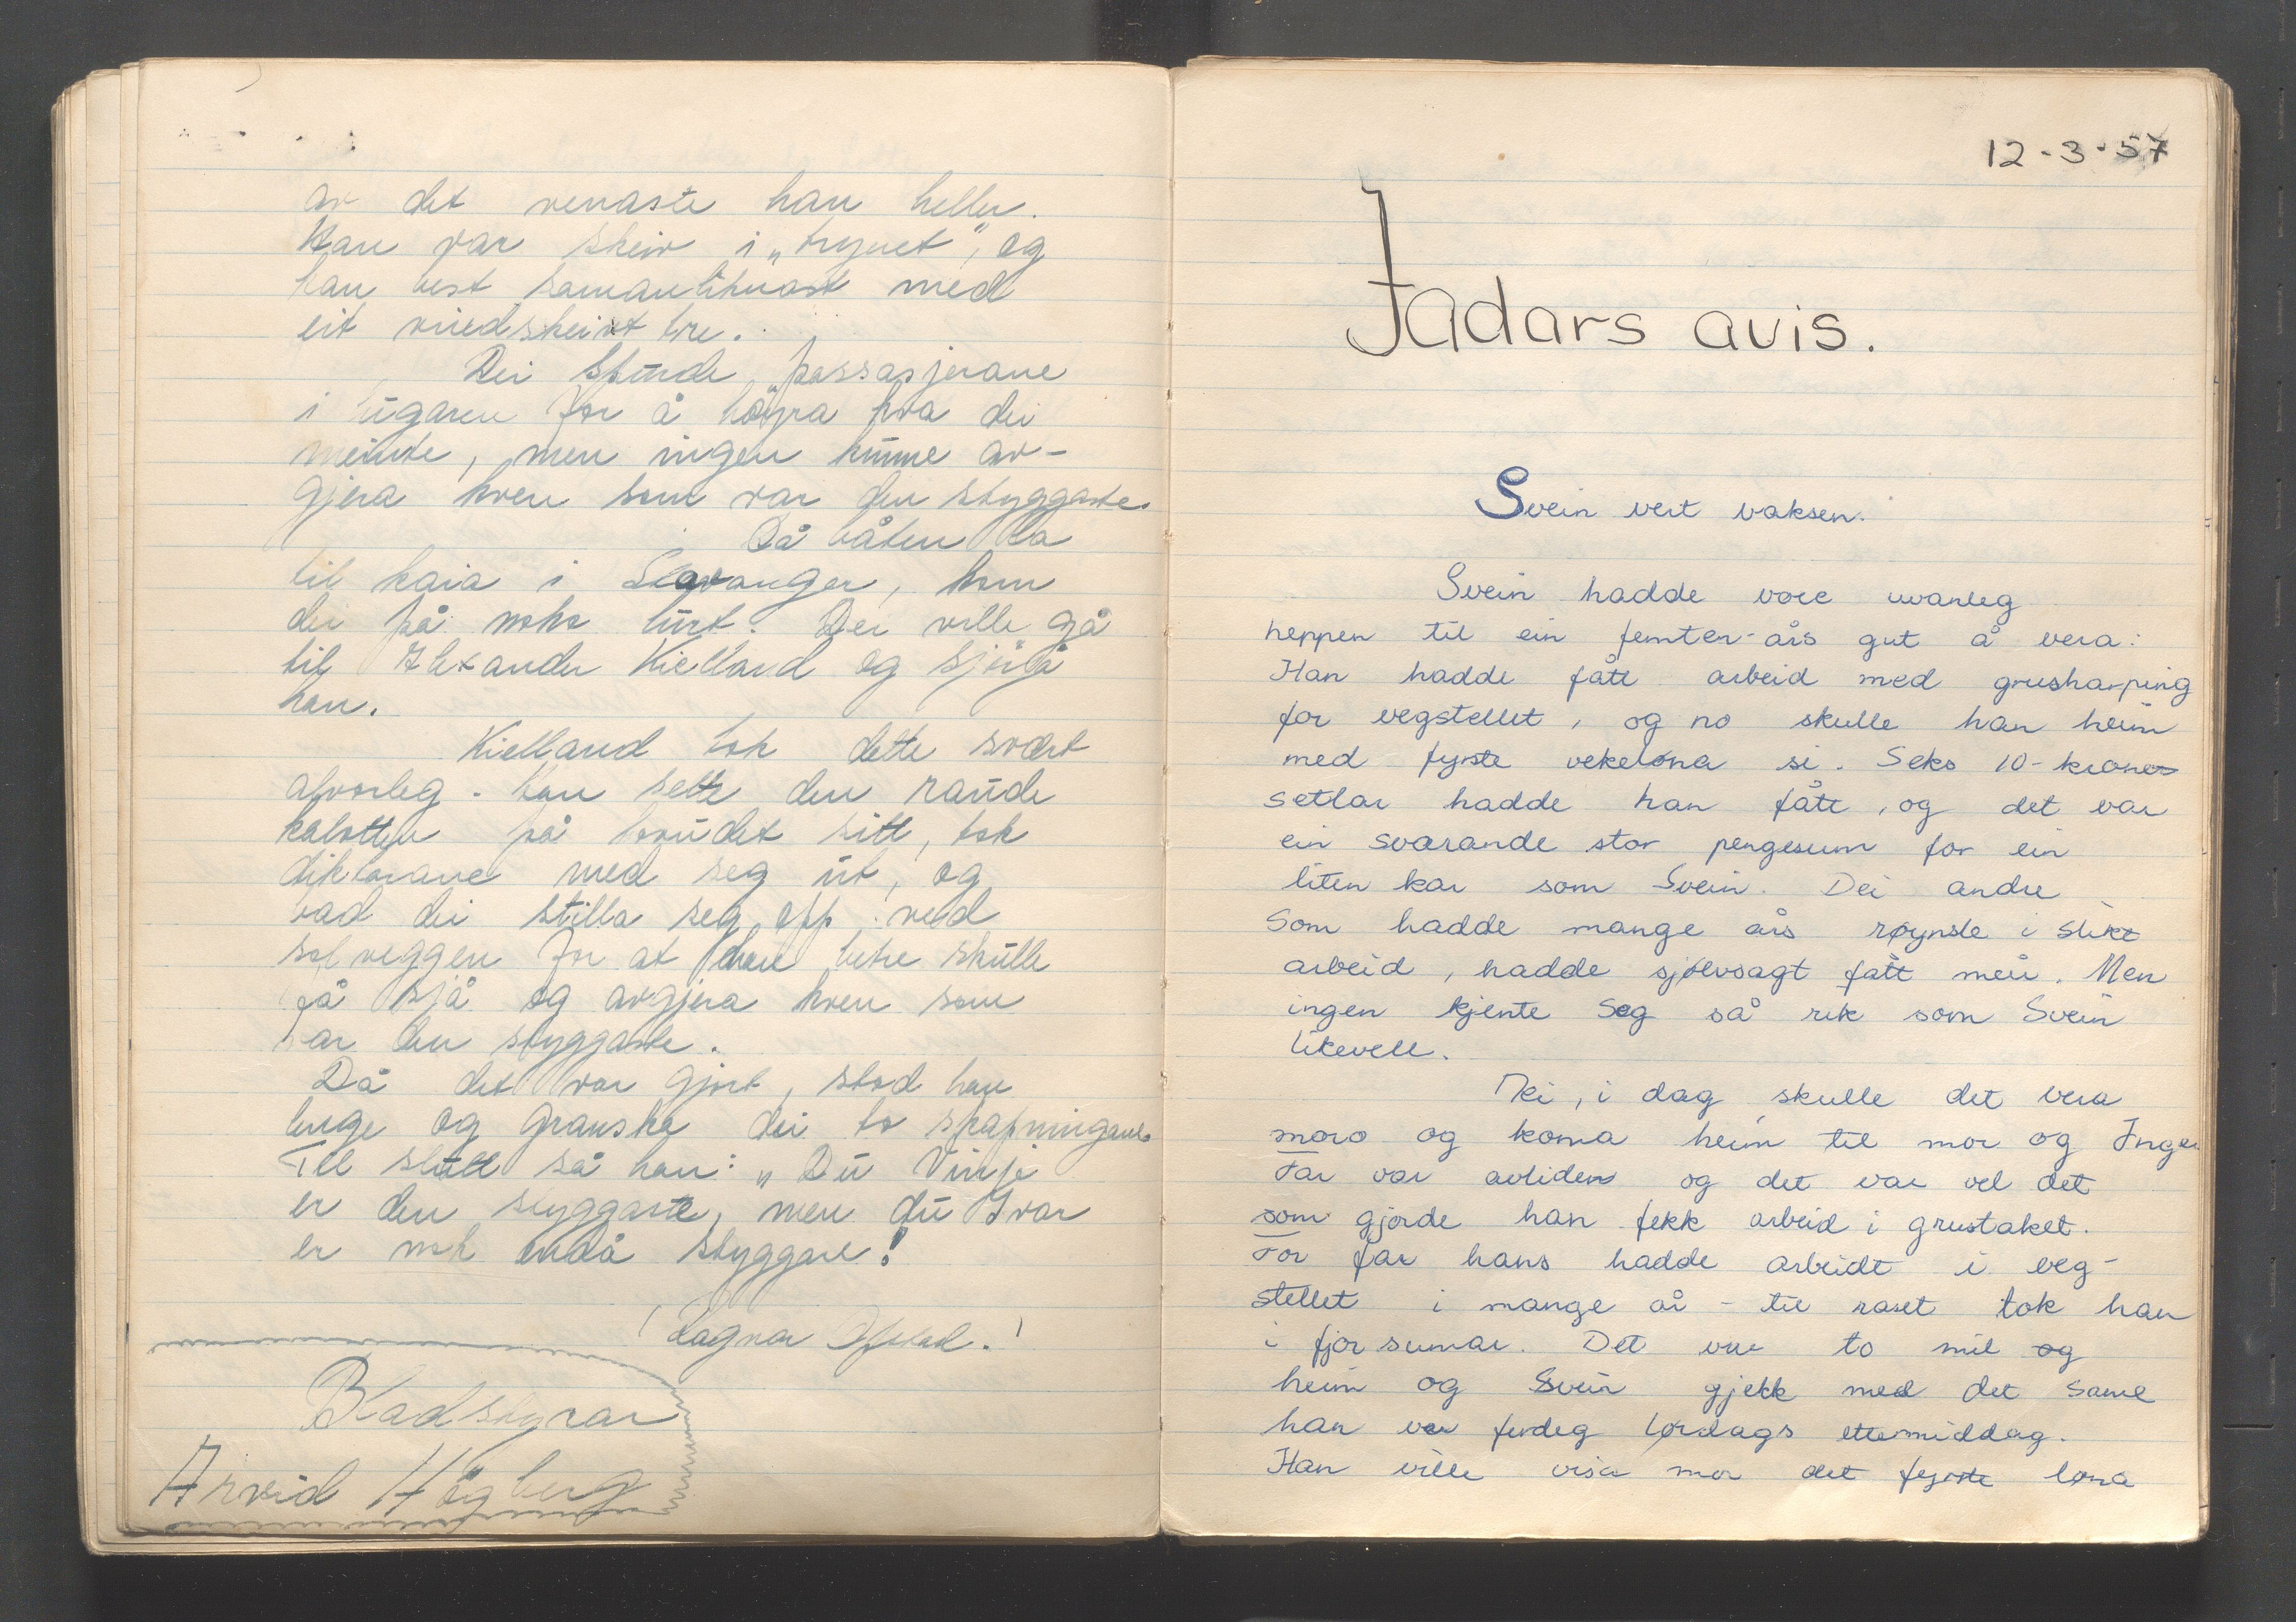 av det venaste han heller.
Han var skeiv i „trynet", og
han best samanliknast med
eit vindskeivt tre.
Dei spurde passasjerane
i lugaren for å høyra kva dei
meinte, men ingen kunne av-
gjera kven som var den styggaste.
Då båten la
til kaia i Stavanger, kom
dei på noko lurt. Dei ville gå
til Alexander Kielland og spørja
han.
Kielland tok dette svært
alvorleg. Han sette den raude
kalotten på hovudet sitt, tok
diktarane med seg ut, og
bad dei stilla seg opp ved
solveggen for at han betre skulle
få sjå og avgjera kven som
var den styggaste.
Då det var gjort, stod han
lenge og granska dei to skapningane.
Til slutt sa han: „Du Vinje
er den styggaste, men du Ivar
er nok endå styggare!
Bladstyrar
Arvid Högberg
12-3-57
Jadars avis.
Svein vert vaksen.
Svein hadde vore uvanleg
heppen til ein femten-års gut å vera:
Han hadde fått arbeid med grusharping
for vegstellet, og no skulle han heim
med fyrste vekeløna si. Seks 10-krones
setlar hadde han fått, og det var
ein sværande stor pengesum for ein
liten kar som Svein. Dei andre
som hadde mange års røynsle i slikt
arbeid, hadde sjølvsagt fått meir. Men
ingen kjente seg så rik som Svein
likevell.
Nei, i dag skulle det vera
moro og koma heim til mor og Inger
Far var avliden og det var vel det
som gjorde han fekk arbeid i grustaket.
For far hans hadde arbeidt i veg-
stellet i mange år - til raset tok han
i fjor sumar. Det var to mil og
heim og Svein gjekk med det same
han var ferdig lørdags ettemiddag.
Han ville visa mor det fyrste løna